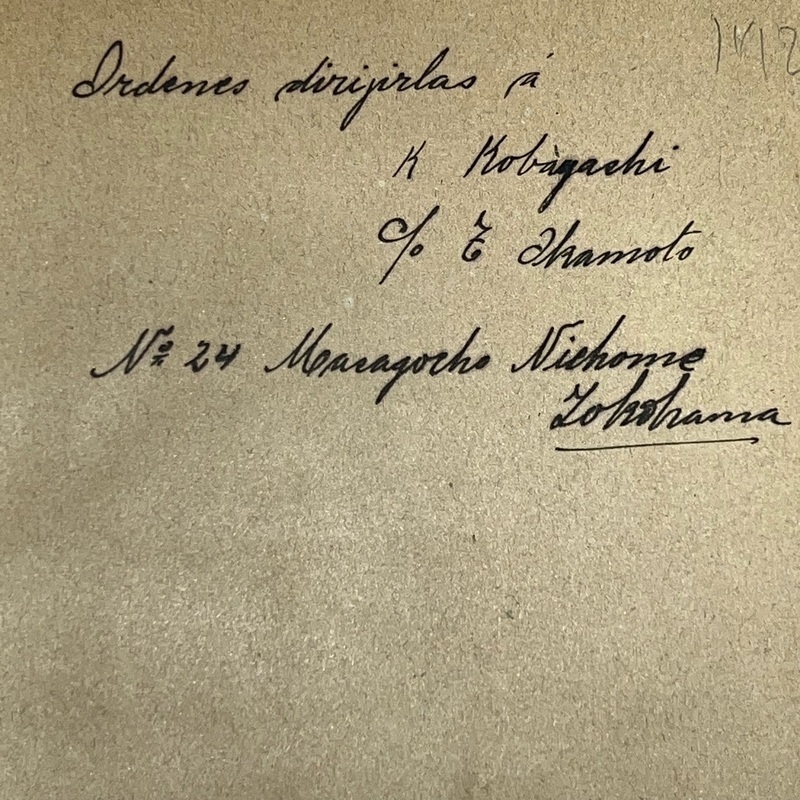 Ordenes dirijirlas á
K Kobayashi
c/o E Okamoto
Nº 24 Masagocho Nichome
Yokohama